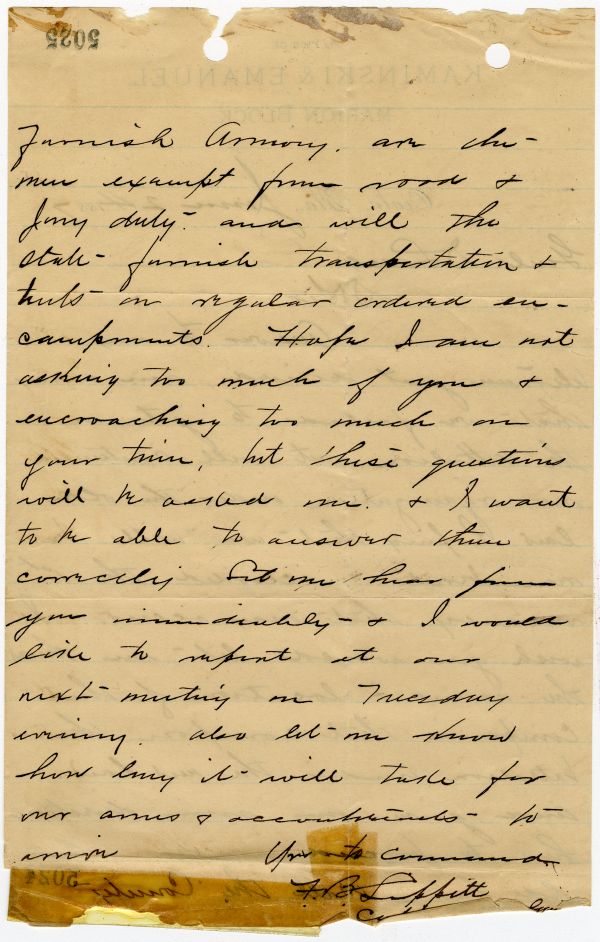 5025
KAMINSKI & EMANUEL
MARION BLOCK
furnish Armory. are the
men exempt from road &
Jury duty- and will the
state furnish transportation &
tents on regular ordered en-
campments. Hope I am not
asking too much of you &
encroaching too much on
your time, but these questions
will be asked me. & I want
to be able to answer them
correctly Let me hear from
you immediately- & I would
like to report at our
next meeting on Tuesday
evening. also let me know
how long it will take for
our arms & accoutrements to
arrive Yours to command
5024
F. B. Lippitt